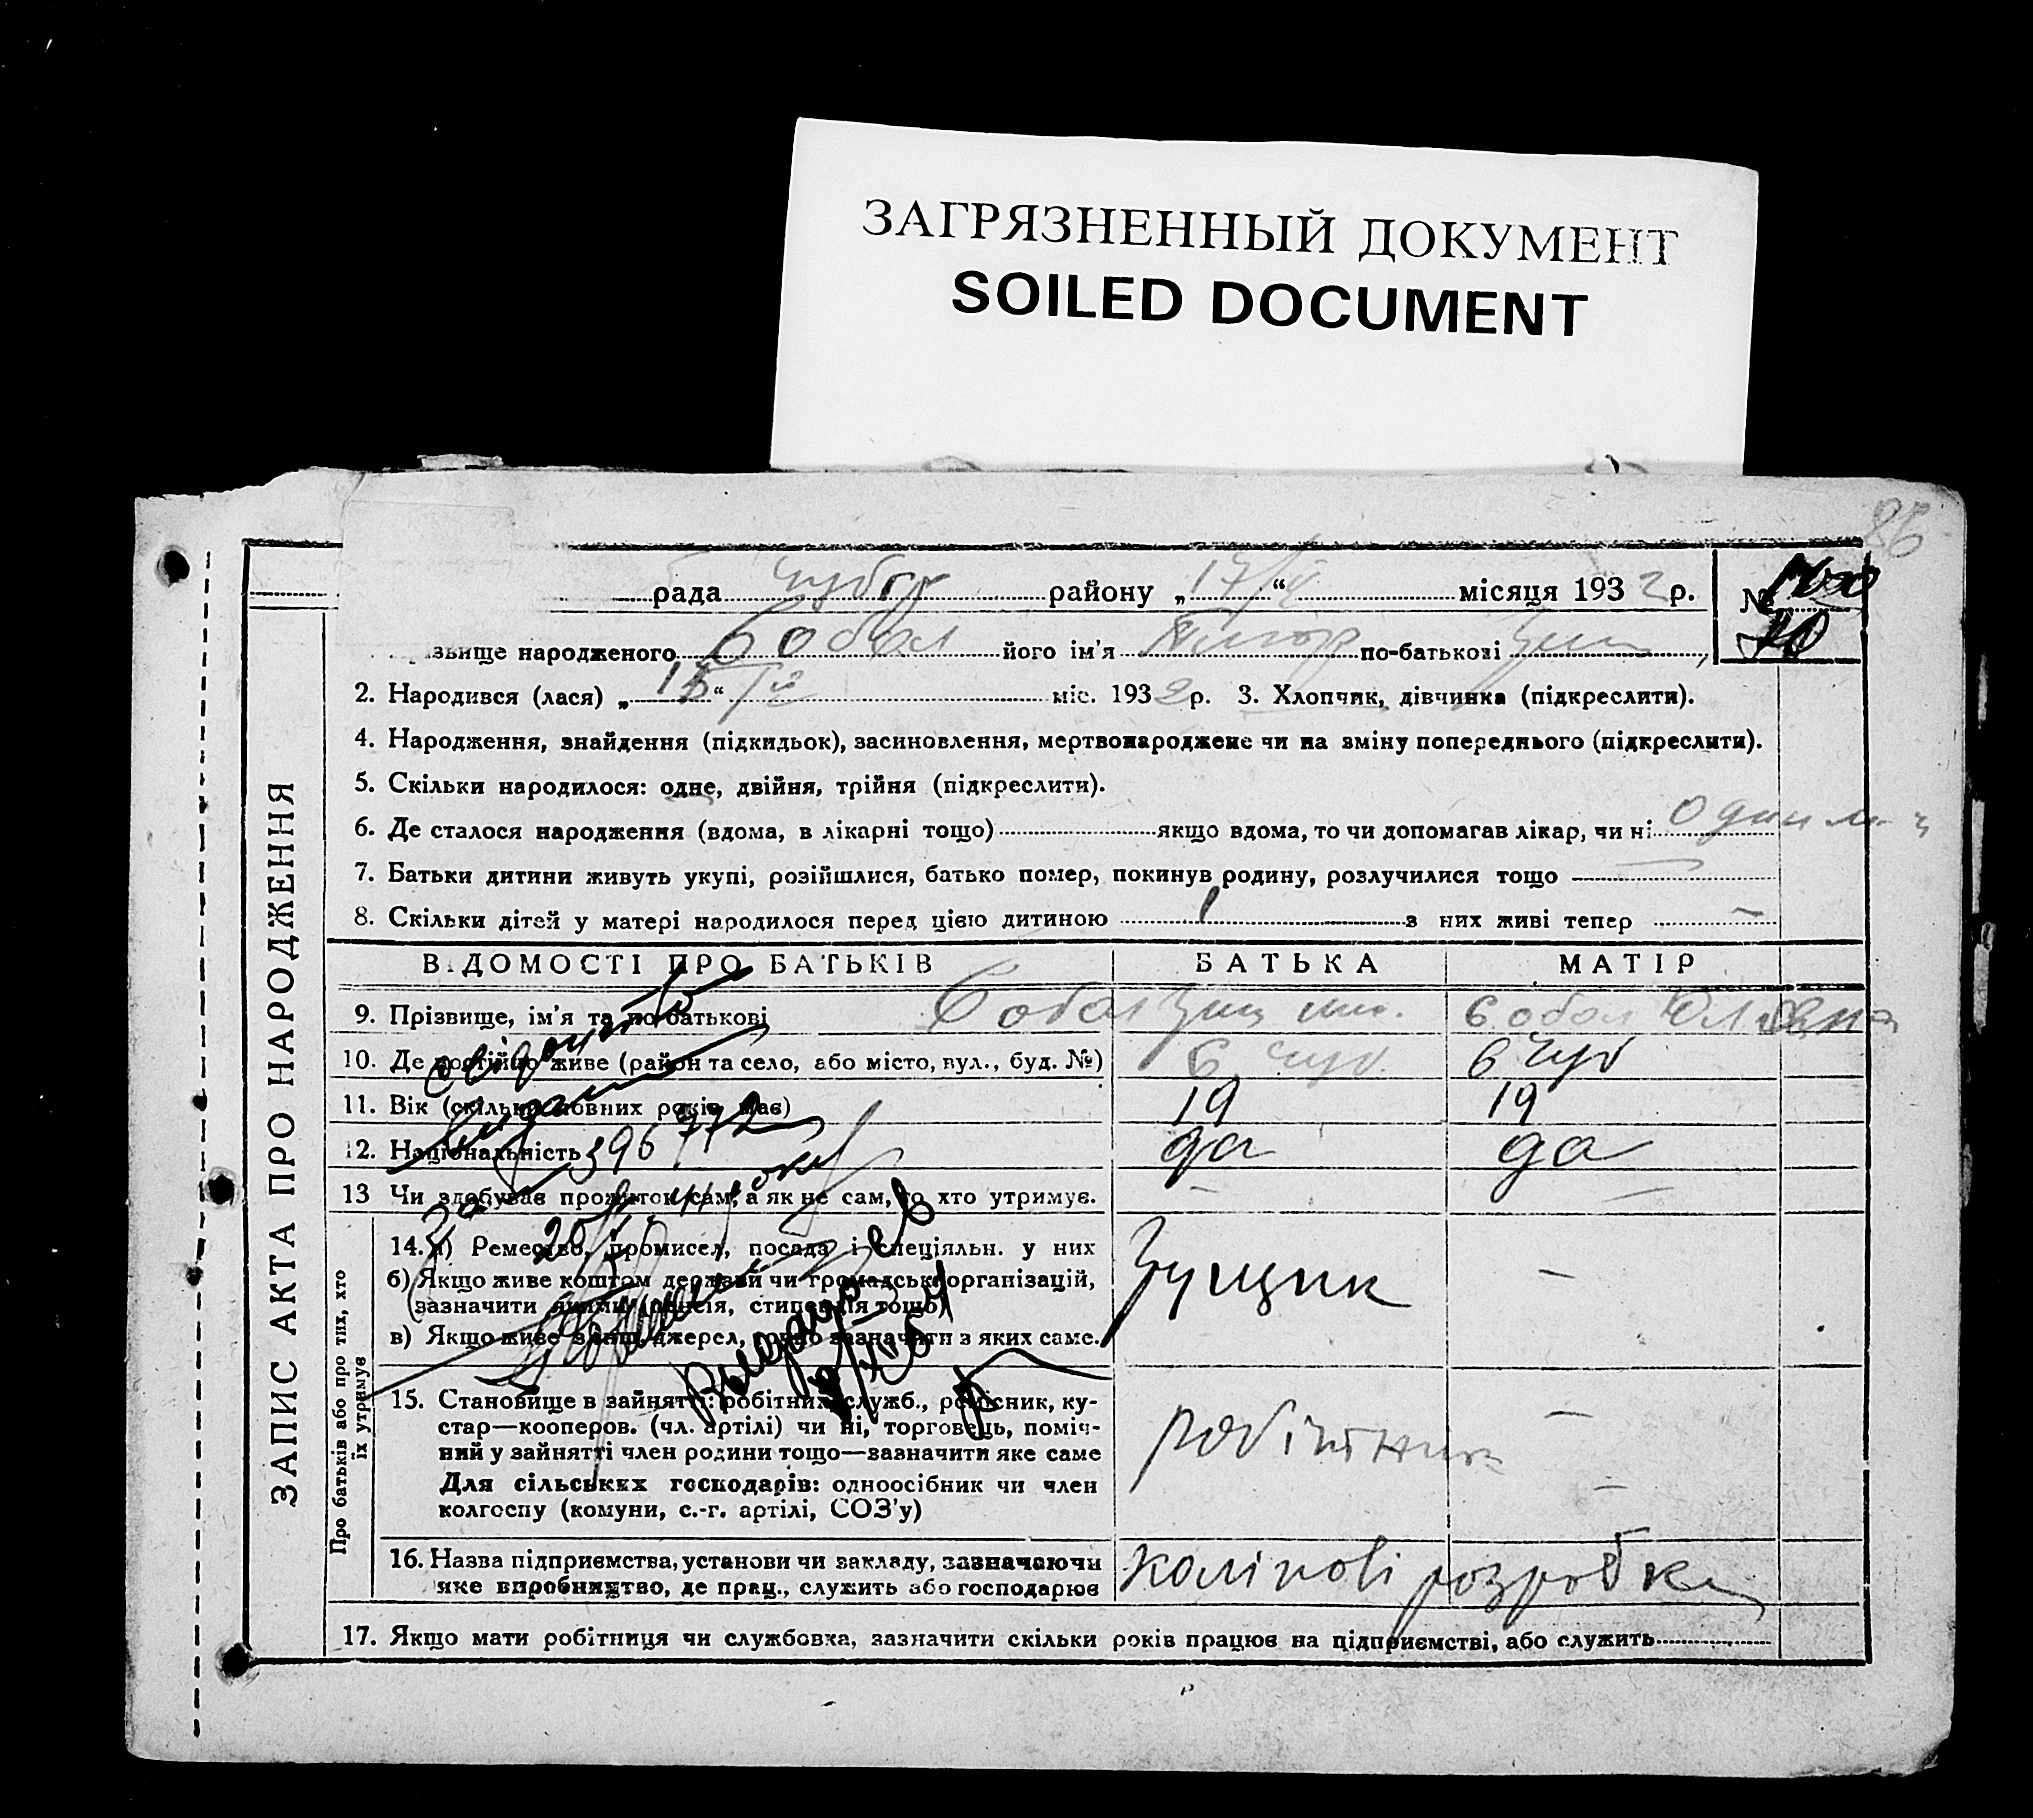 ЗАГРЯЗНЕННЫЙ ДОКУМЕНТ
SOILED DOCUMENT
86
рада району „17/IV“ місяця 1932 р. №
70
звище народженого Собол його ім'я по-батькові
2. Народився (лася) „15“ IV міс. 1932 р. 3. Хлопчик, дівчинка (підкреслити).
4. Народження, знайдення (підкидьок), засиновлення, мертвонароджене чи на зміну попереднього (підкреслити).
5. Скільки народилося: одне, двійня, трійня (підкреслити).
6. Де сталося народження (вдома, в лікарні тощо) якщо вдома, то чи допомагав лікар, чи ні
7. Батьки дитини живуть укупі, розійшлися, батько помер, покинув родину, розлучилися тощо —
8. Скільки дітей у матері народилося перед цією дитиною 1 з них живі тепер —
ЗАПИС АКТА ПРО НАРОДЖЕННЯ
ВІДОМОСТІ ПРО БАТЬКІВ БАТЬКА МАТІР
9. Прізвище, ім'я та по батькові Собол Собол
10. Де постійно живе (район та село, або місто, вул., буд. №) с Чуб с Чуб
11. Вік (скільки повних років має) 19 19
12. Національність да да
13 Чи здобував прожиток сам, а як не сам, то хто утримує. — —
Про батьків або про тих, хто
їх утримує
14. а) Ремество, промисел, посада і спеціяльн. у них —
б) Якщо живе коштом держави чи громадськ. організацій,
(зазначити якими: пенсія, стипендія тощо)
в) Якщо живе з інш. джерел, точно зазначити з яких саме.
15. Становище в зайнятті: робітник, служб., ремісник, ку-
стар—кооперов. (чл. артілі) чи ні, торговець, поміч-
ний у зайнятті член родини тощо—зазначити яке саме
Для сільських господарів: одноосібник чи член
колгоспу (комуни, с.-г. артілі, СОЗ'у)
робітник — —
16. Назва підприємства, установи чи закладу, зазначаючи
яке виробництво, де прац., служить або господарює
розробки
17. Якщо мати робітниця чи службовка, зазначити скільки років працює на підприємстві, або служить
свідоцтво
видано
396772